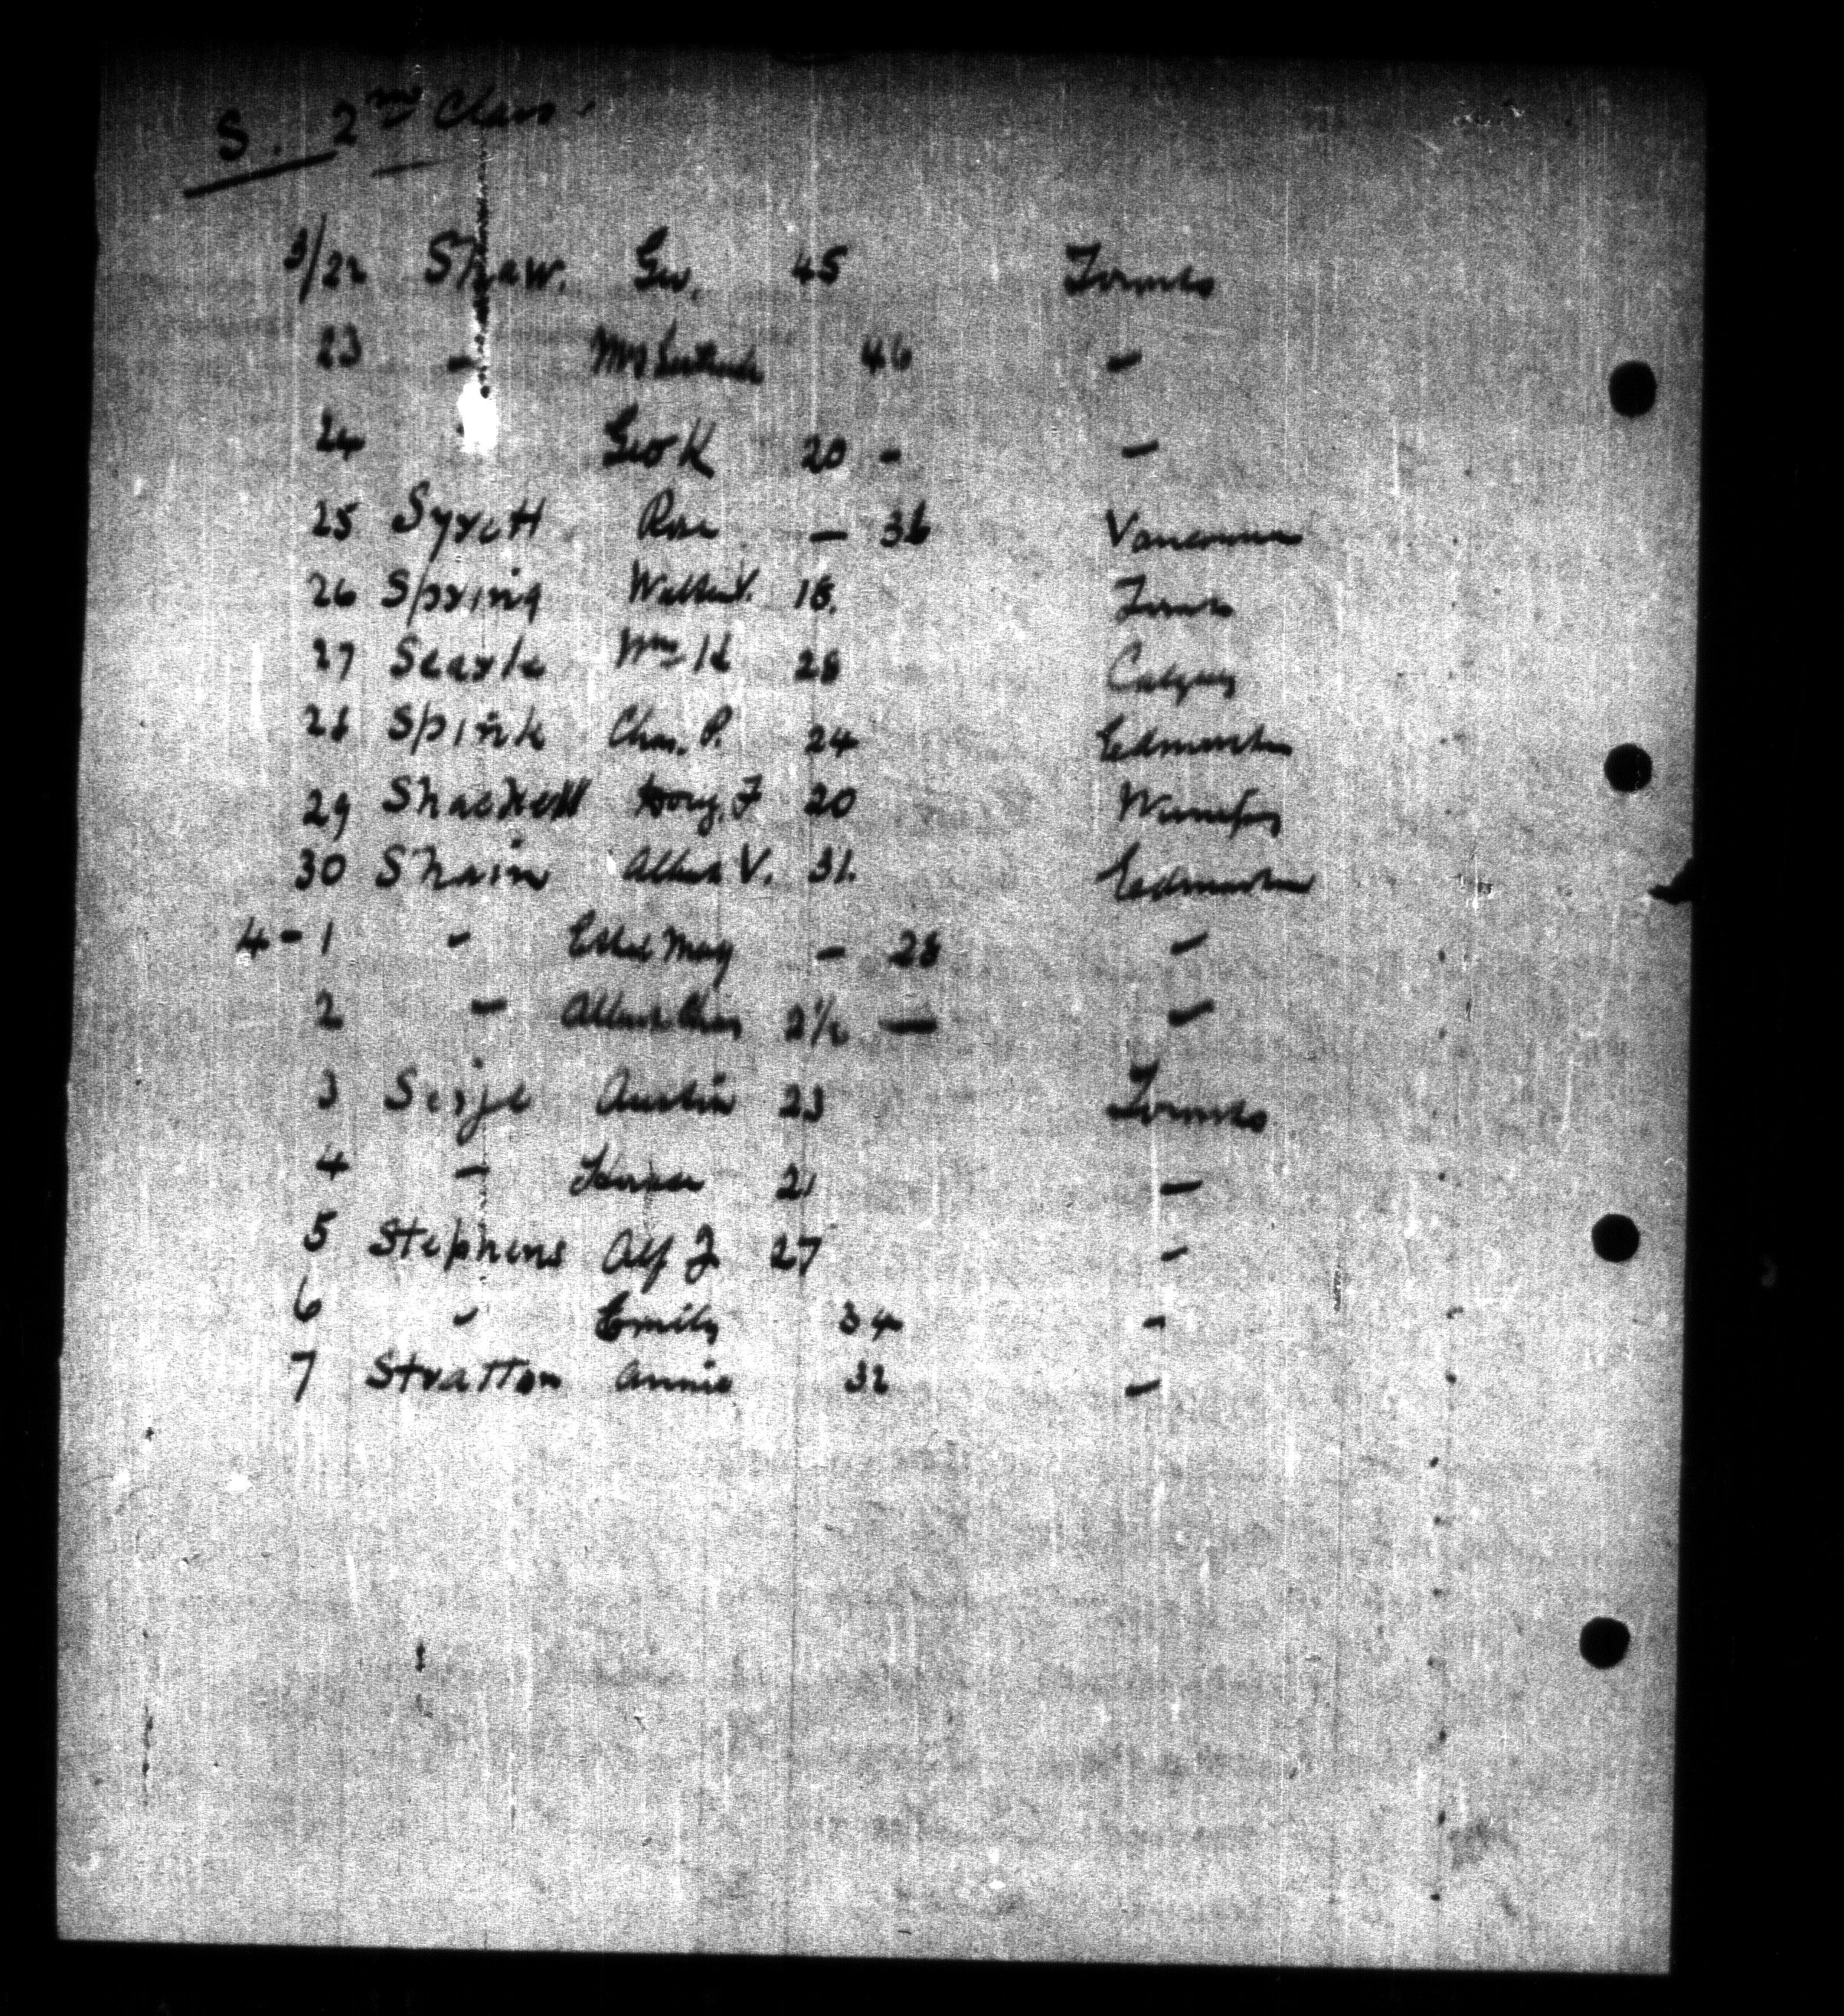 S. 2nd Class.
3/22 Shaw. Geo. 45 Toronto
23 " Mrs Gertrude 46 "
24 " Geo K 20 - "
25 Syrett Rose - 36 Vancouver
26 Spring Walter V. 18. Toronto
27 Searle Wm H 28 Calgary
28 Spink Chas. P. 24 Edmonton
29 Shackell F 20 Winnipeg
30 Shain Albert V. 31. Edmonton
4-1 " Ethel May - 28 "
2 " Albert 2½ - "
3 Austin 23 Toronto
4 " 21 "
5 Stephens Alf J 27 "
6 " Emily 34 "
7 Stratton Annie 32 "